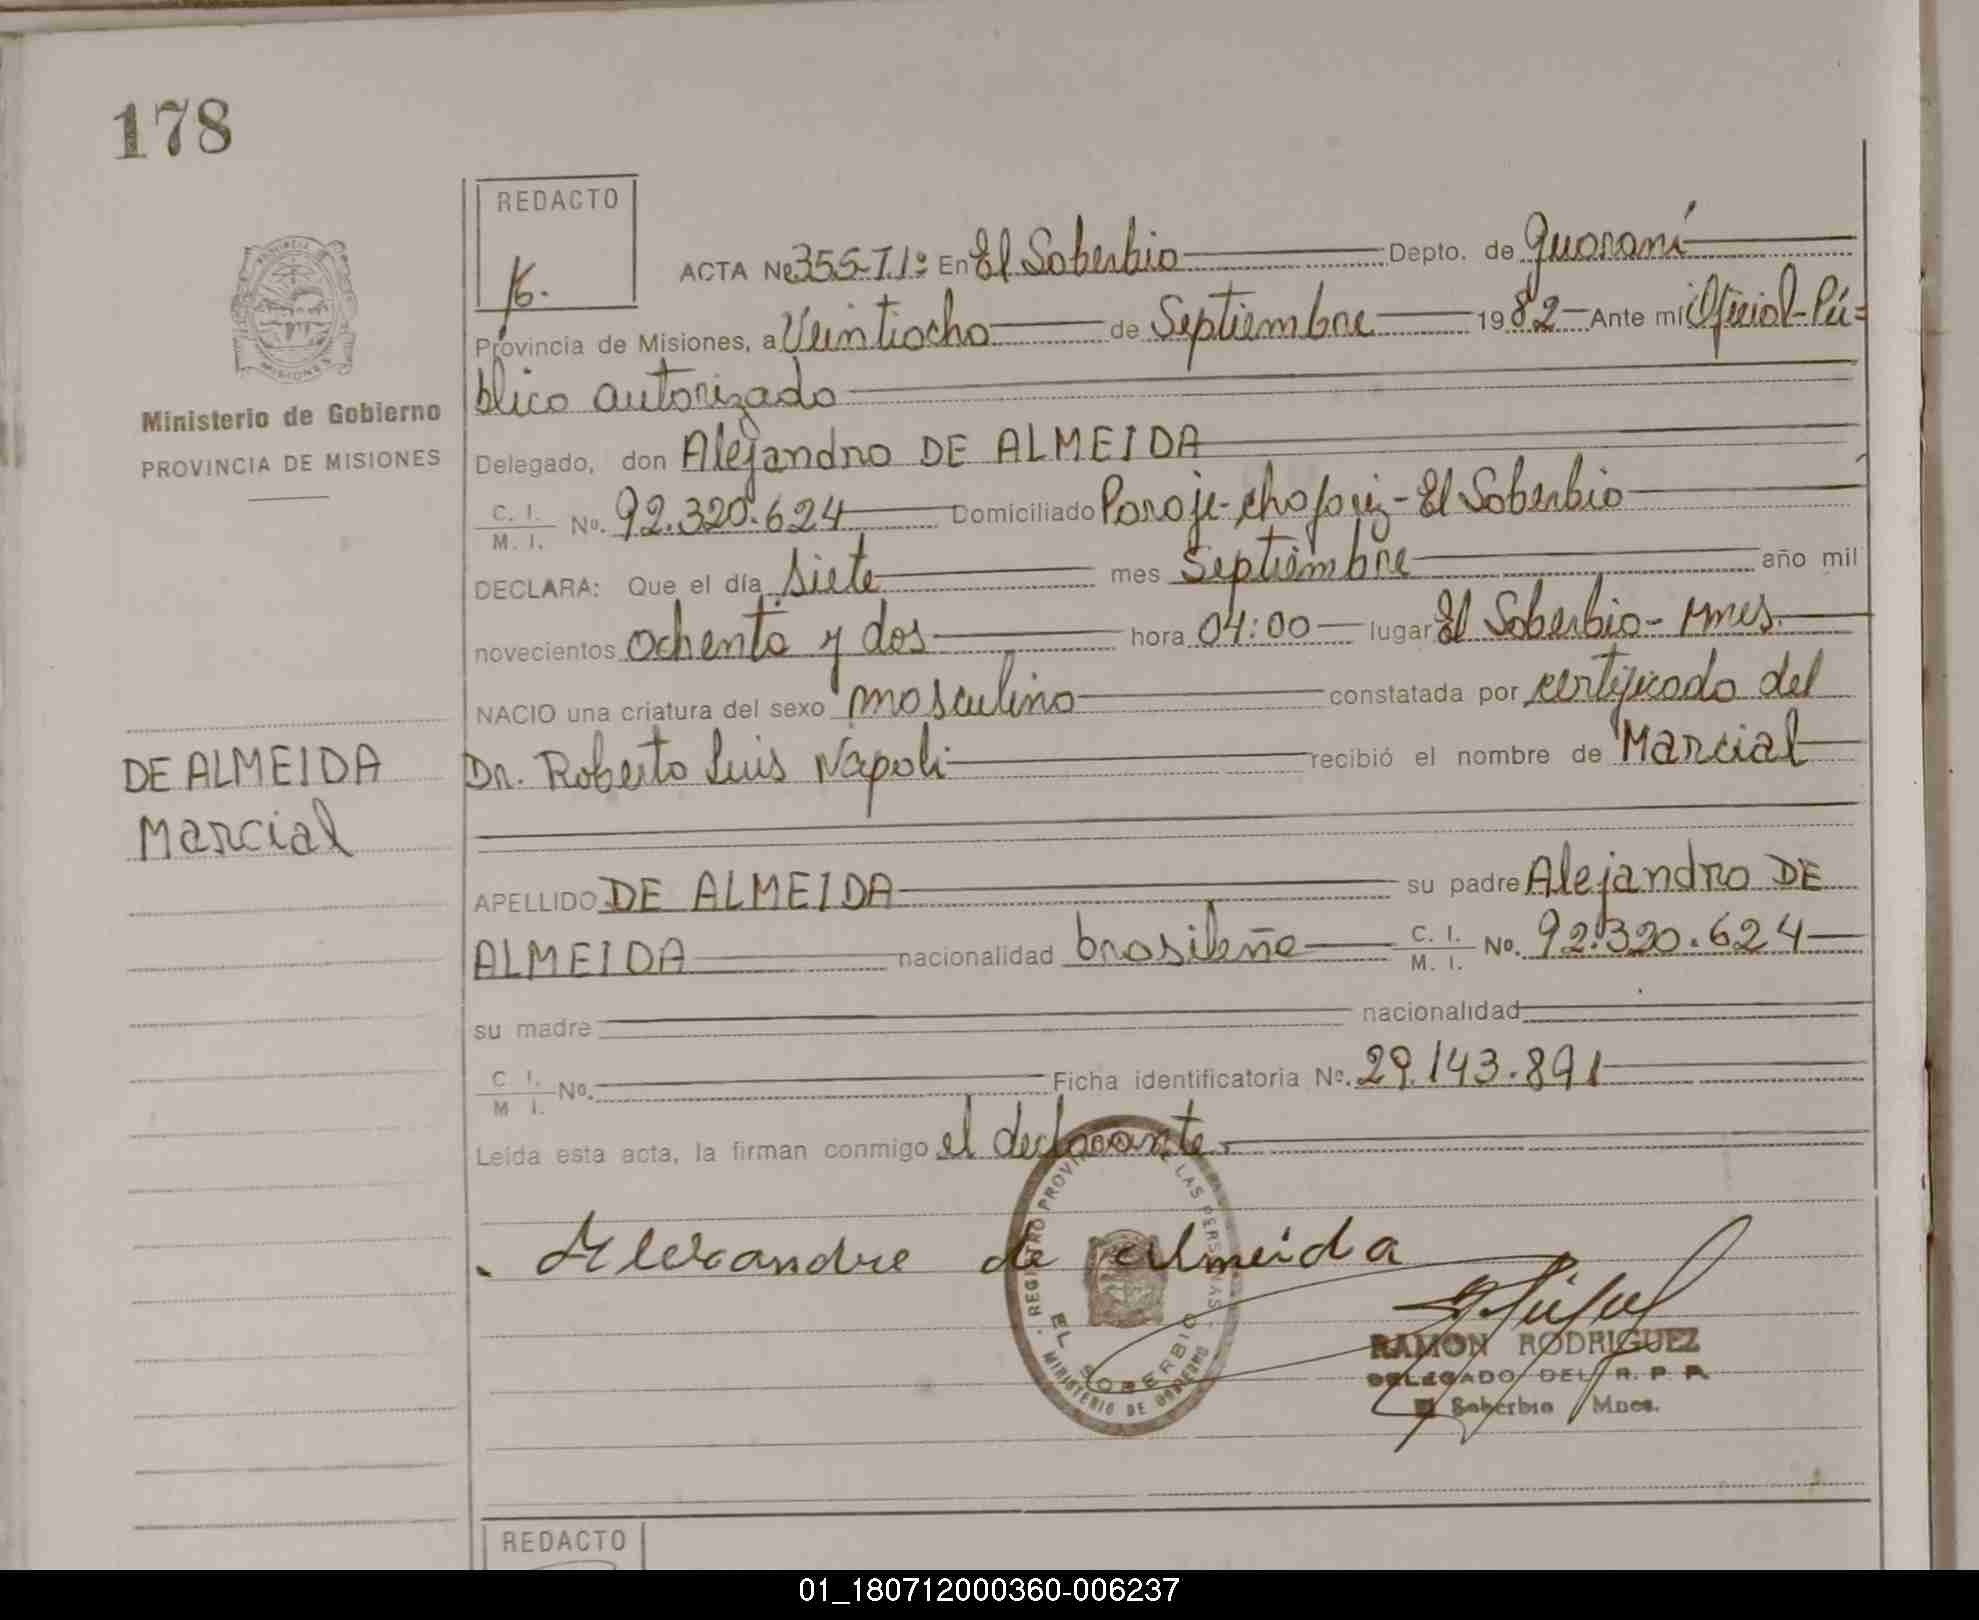 178
REDACTO
ACTA Nº 355-T.1º En El Soberbio Depto. de Guaraní
Provincia de Misiones, a Veintiocho de Septiembre 1982 Ante mi Oficial-Pú=
blico autorizado
Ministerio de Gobierno
PROVINCIA DE MISIONES
Delegado, don Alejandro DE ALMEIDA
C. I. M. I. No. 92.320.624 Domiciliado Paraje- - El Soberbio
DECLARA: Que el día siete mes Septiembre año mil
novecientos ochenta y dos hora 04:00 lugar El Soberbio- Mnes.
NACIO una criatura del sexo masculino constatada por certificado del
DE ALMEIDA
Marcial
Dr. Roberto Luis Napoli recibió el nombre de Marcial
APELLIDO DE ALMEIDA su padre Alejandro DE
ALMEIDA nacionalidad brasileño C. I. M. I. No. 92.320.624
su madre nacionalidad
C. I. M. I. No. Ficha identificatoria No. 29.143.891
Leída esta acta, la firman conmigo el declarante.
Alexandre de almeida
REGISTRO PROVINCIAL DE LAS PERSONAS
EL SOBERBIO
MINISTERIO DE GOBIERNO
RAMON RODRIGUEZ
DELEGADO DEL R. P. P.
El Soberbio Mnes.
REDACTO
01_180712000360-006237